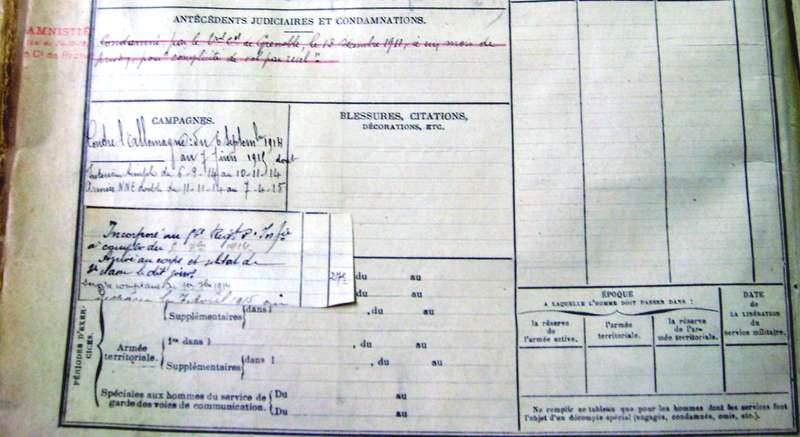 AMNISTIÉ
ANTÉCÉDENTS JUDICIAIRES ET CONDAMNATIONS.
Condamné, par le de Grenoble, le 13 1911, à un mois de
prison, pour "complicité de vol par recel".
CAMPAGNES.
Contre l'allemagne: du 6 Septembre 1914
au 7 1915 dont
Intérieur simple du 6-9-14 au 10-11-14
Armées NNE double du 11-11-14 au 7-4-15
BLESSURES, CITATIONS,
DÉCORATIONS, ETC.
Incorporé au Regt d'Infie
à compter du 1914.
Arrivé au corps et soldat de
2e classe le dit jour.
1915
du au
du au
PÉRIODES D'EXERCICES.
Supplémentaires dans l , du au
Armée territoriale.
1re dans l , du au
Supplémentaires dans l , du au
Spéciales aux hommes du service de garde des voies de communication.
Du au
Du au
ÉPOQUE
A LAQUELLE L'HOMME DOIT PASSER DANS :
la réserve de l'armée active.
l'armée territoriale.
la réserve de l'armée territoriale.
DATE
de
LA LIBÉRATION
du
service militaire.
Ne remplir ce tableau que pour les hommes dont les services font
l'objet d'un décompte spécial (engagés, condamnés, omis, etc.).